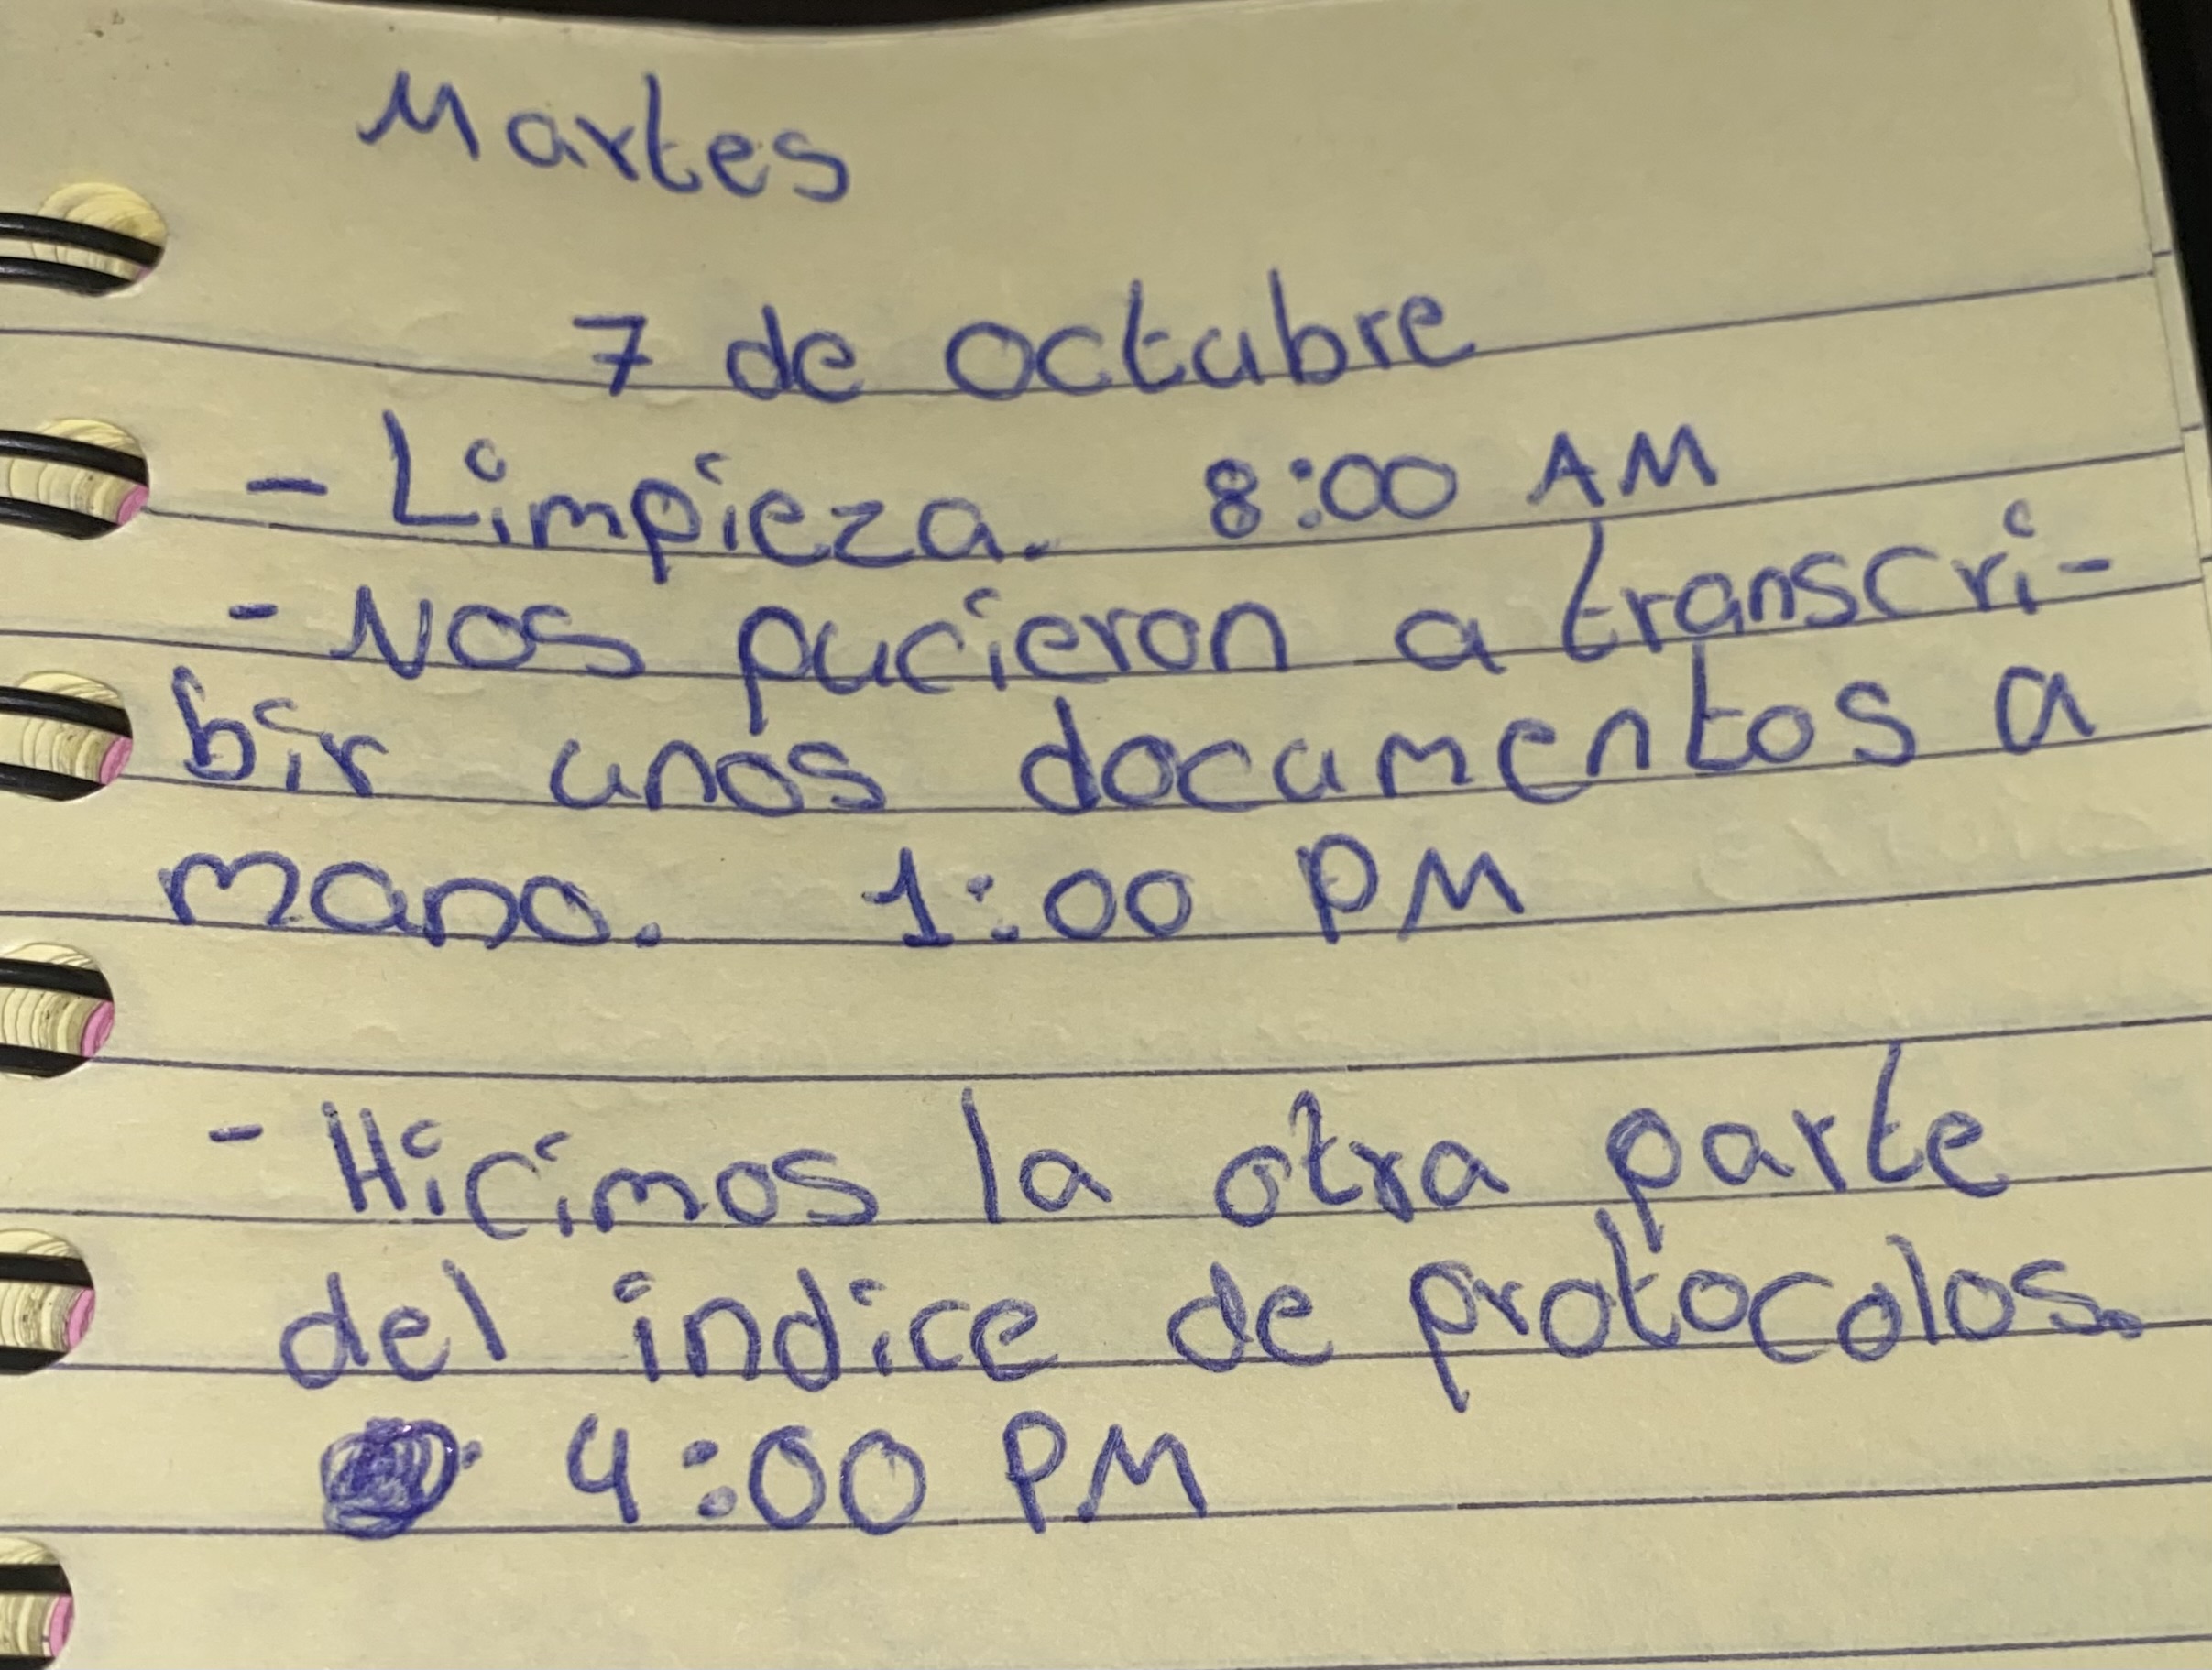 Martes
7 de octubre
- Limpieza. 8:00 AM
- Nos pucieron a transcri-
bir unos documentos a
mano. 1:00 PM
- Hicimos la otra parte
del indice de protocolos.
4:00 PM